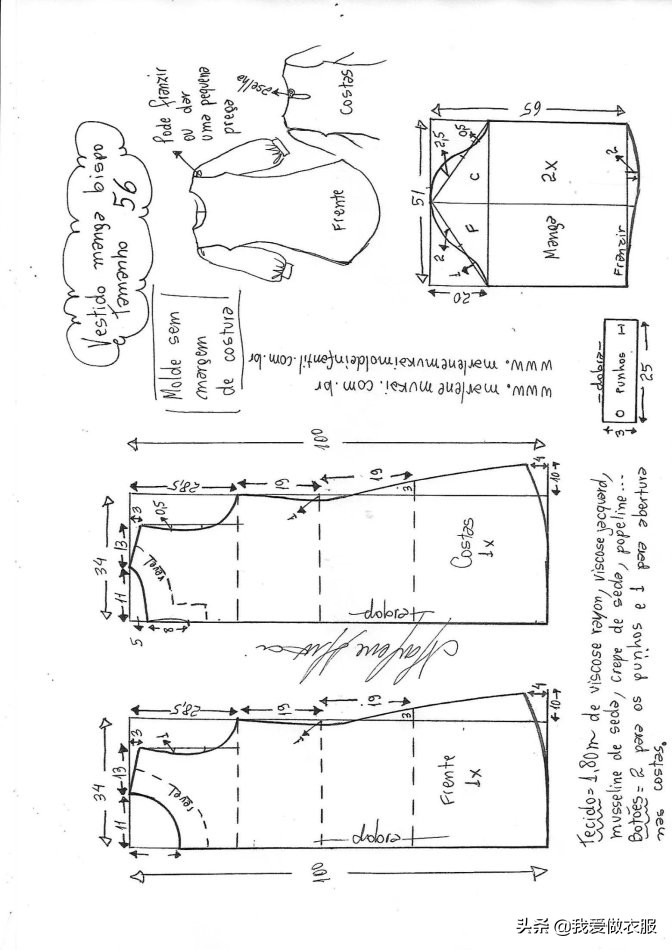 Vestido manga bispo
tamanho 56
Pode franzir
ou dar
uma pequena
prega
aselha
Costas
Frente
Molde sem
margem
de costura
www.marlenemukai.com.br
www.marlenemukaimoldeinfantil.com.br
65
51
20
2,5
0,5
C
2X
2
F
2
1
Manga
Franzir
-dobra-
O punhos H
3
25
100
28,5
19
19
4
10
3
0,5
1
3
34
13
11
revel
Costas
1x
dobra
5
8
Marlene Mukai
28,5
19
19
4
10
3
1
1
3
34
13
11
revel
Frente
1x
dobra
100
Tecido= 1,80m de viscose rayon, viscose jacquard,
musseline de seda, crepe de seda, popeline...
Botões= 2 para os punhos e 1 para abertura
nas costas.
头条 @我爱做衣服